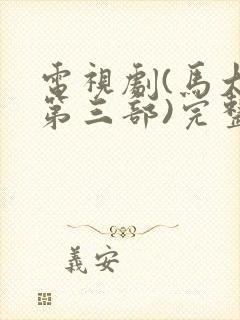 電視劇(馬大
第三部)完整
義安